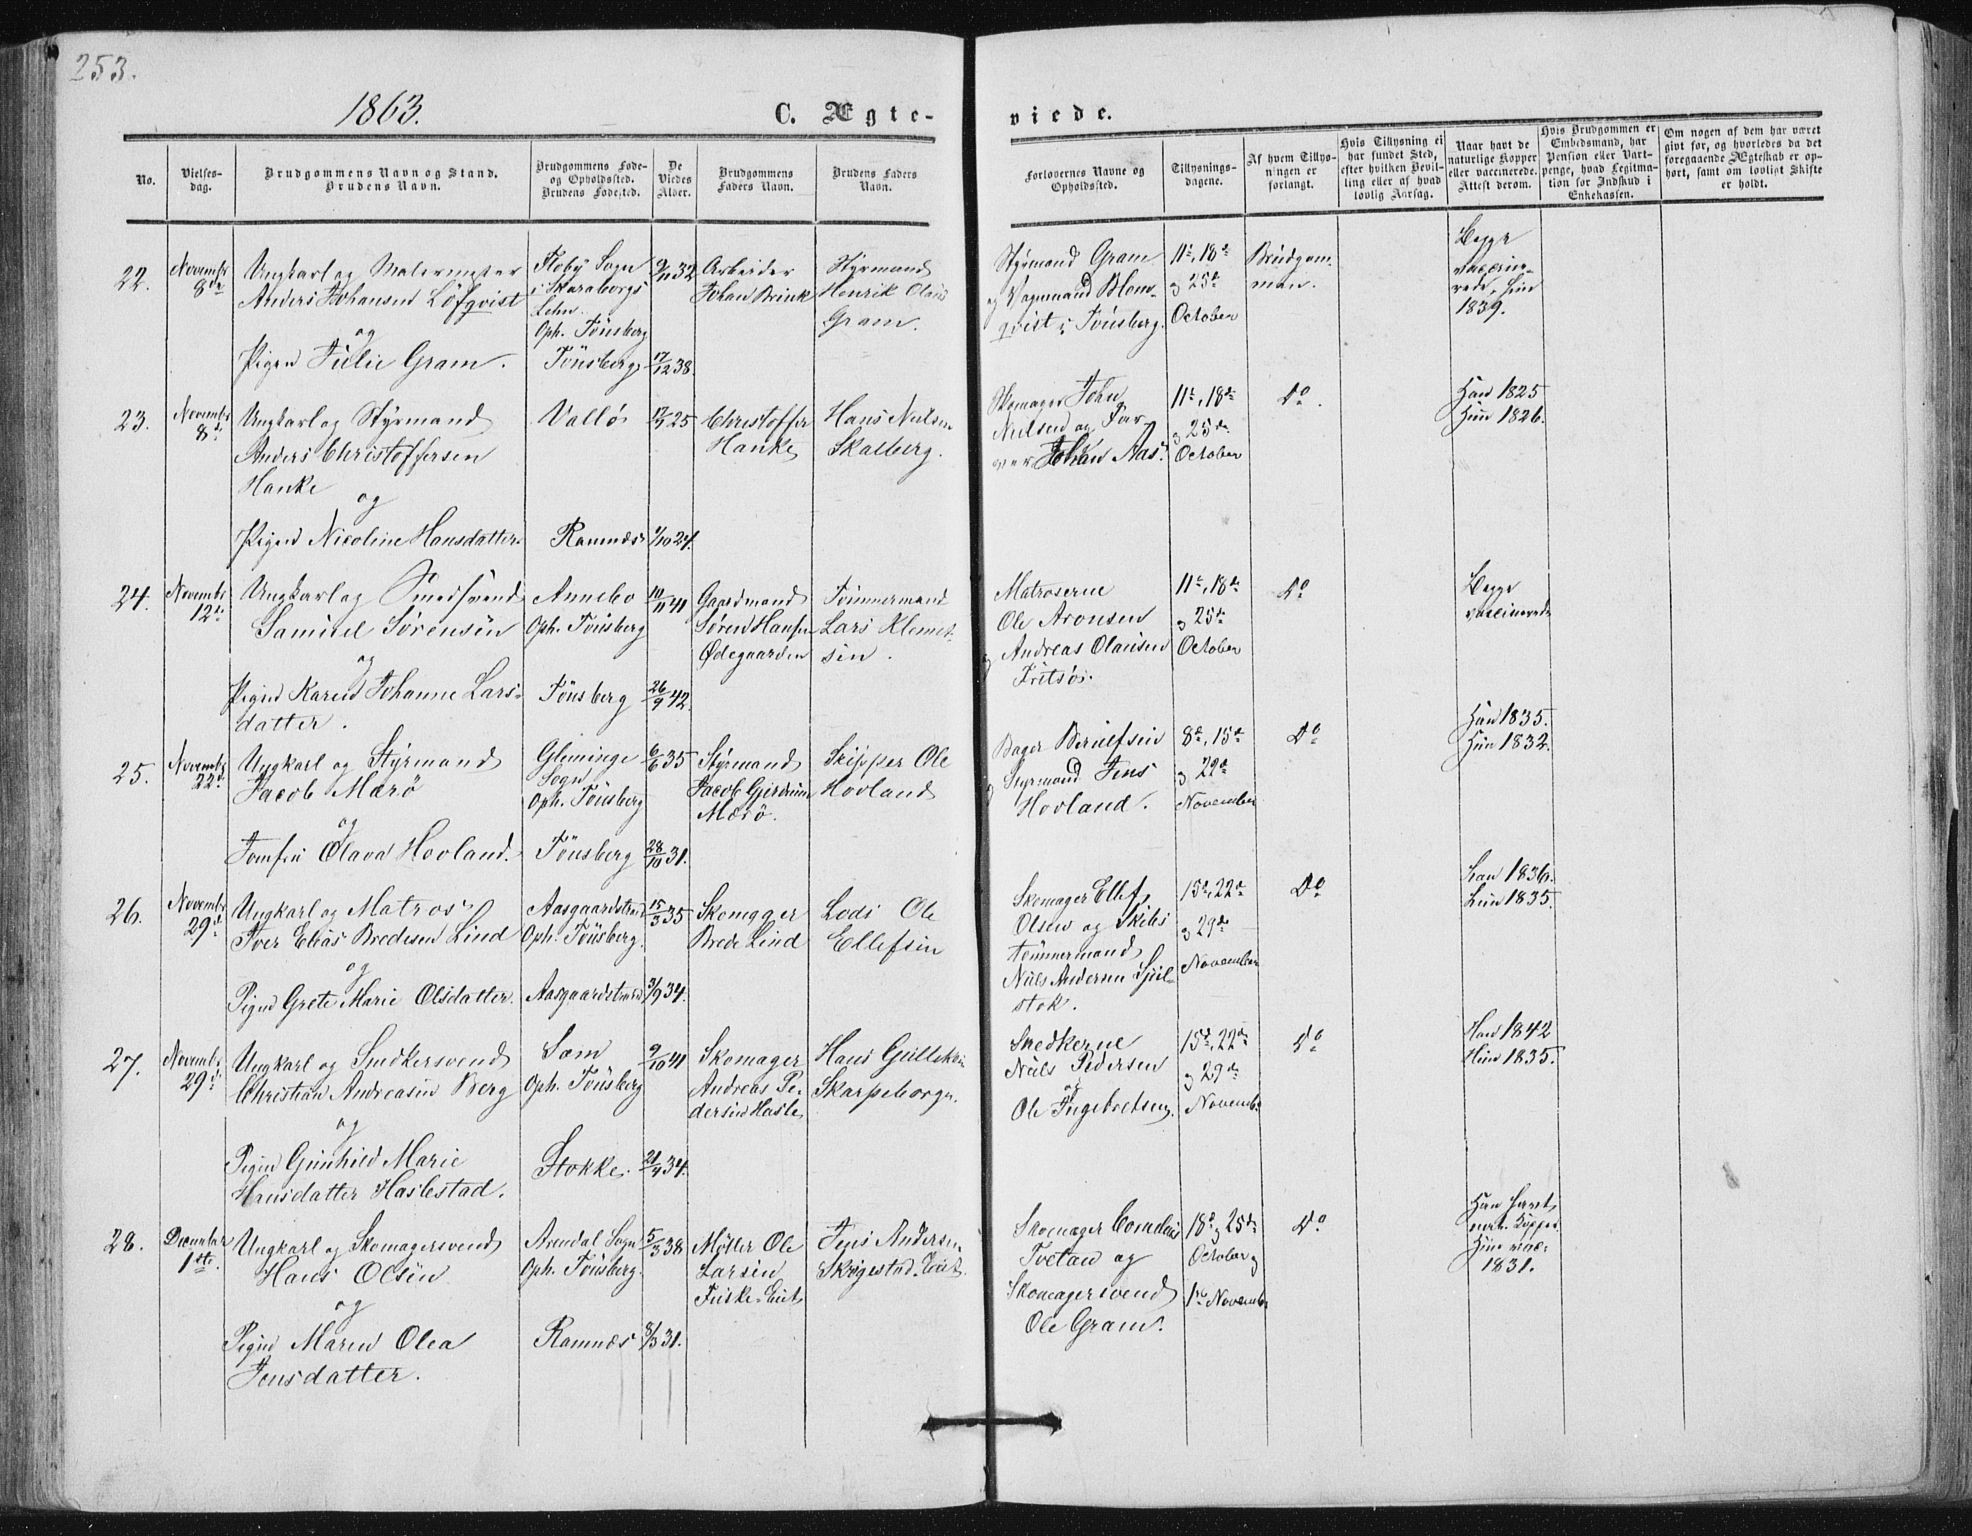 253.
1863.
C. Ægte-
viede.
No.
Vielses-
dag.
Brudgommens Navn og Stand.
Brudens Navn.
Brudgommens Føde-
og Opholdssted.
Brudens Fødested.
De
Viedes
Alder.
Brudgommens
Faders Navn.
Brudens Faders
Navn.
Forlovernes Navne og
Opholdssted.
Tillysnings-
dagene.
Af hvem Tillys-
ningen er
forlangt.
Hvis Tillysning ei
har fundet Sted,
efter hvilken Bevil-
ling eller af hvad
lovlig Aarsag.
Naar havt de
naturlige Kopper
eller vaccinerede.
Attest derom.
Hvis Brudgommen er
Embedsmand, har
Pension eller Vart-
penge, hvad Legitima-
tion for Indskud i
Enkekassen.
Om nogen af dem har været
givt før, og hvorledes da det
foregaaende Ægteskab er op-
hørt, samt om lovligt Skifte
er holdt.
22.
Novembr
8de
Ungkarl og Malermester
Anders Johansen Löfqvist
og
Pigen Julie Gram.
Floby Sogn
i Skaraborgs
Lehn.
Oph. Tönsberg
Tönsberg
9/11 32
17/12 38.
Arbeider
Johan Brink
Styrmand
Henrik Olaus
Gram.
Styrmand Gram
og Vognmand Blom-
qvist i Tönsberg.
11te, 18de
og 25de
October
Brudgom-
men.
Begge
vaccine-
rede, hun
1839.
23.
Novembr
8de
Ungkarl og Styrmand
Anders Christoffersen
Hanke
og
Pigen Nicoline Hansdatter
Vallö
Ramnæs
25
1/10 24.
Christoffer
Hanke
Hans Nielsen
Skalberg.
Skomager John
Nielsen og Far-
ver Johan Aas.
11te, 18de
og 25de
October
Do.
Han 1825
Hun 1826.
24.
Novembr
12te
Ungkarl og Smedsvend
Samuel Sörensen
og
Pigen Karen Johanne Lars-
datter.
Annebo
Oph. Tönsberg
Tönsberg
10/11 41
26/9 42.
Gaardmand
Sören Hansen
Ødegaarden
Tömmermand
Lars Klemet-
sen.
Matroserne
Ole Aronsen
og Andreas Olausen
Fritsöe.
11te, 18de
og 25de
October
Do
Begge
vaccinerede
25.
Novembr
22de
Ungkarl og Styrmand
Jacob Marö
og
Jomfru Olava Hovland.
Gliminge
Sogn
Oph. Tönsberg
Tönsberg
6/6 35
28/10 31.
Styrmand
Jacob
Marö.
Skipper Ole
Hovland
Bager Berulfsen
og Styrmand Jens
Hovland.
8de, 15de
og 22de
November
Do
Han 1835.
Hun 1832.
26.
Novembr
29de
Ungkarl og Matros
Iver Elias Bredesen Lind
og
Pigen Grete Marie Olsdatter.
Aasgaardstrand
Oph. Tönsberg.
Aasgaardstrand
15/3 35
3/9 34.
Skomager
Brede Lind
Lods Ole
Ellefsen
Skomager Ellef
Olsen og Skibs
tömmermand
Niels Andersen
stok.
15de, 22de
og 29de
November
Do
Han 1836.
Hun 1835.
27.
Novembr
29de
Ungkarl og Snedkersvend
Christian Andreasen Berg
og
Pigen Gunhild Marie
Hansdatter Haslestad.
Sæm
Oph. Tönsberg
Stokke.
9/10 41
21/4 34.
Skomager
Andreas Pe-
dersen Hasle
Hans Gulliksen
Skarpeborg.
Snedkerne
Niels Pedersen
og
Ole Ingebretsen.
15de, 22de
og 29de
Novembr
Do
Han 1842
Hun 1835.
28.
December
1ste.
Ungkarl og Skomagersvend
Hans Olsen
og
Pigen Maren Olea
Jensdatter.
Arendal Sogn
Oph. Tönsberg.
Ramnæs
5/3 38
8/3 31.
Möller Ole
Larsen
Fuske-Eie
Jens Andersen
Skogestad.
Skomager Cornelius
Tvetan og
Skomagersvend
Ole Gram.
18de og 25de
October og
1ste November
Do
Han havt
nat. Kopper
Hun vac.
1831.